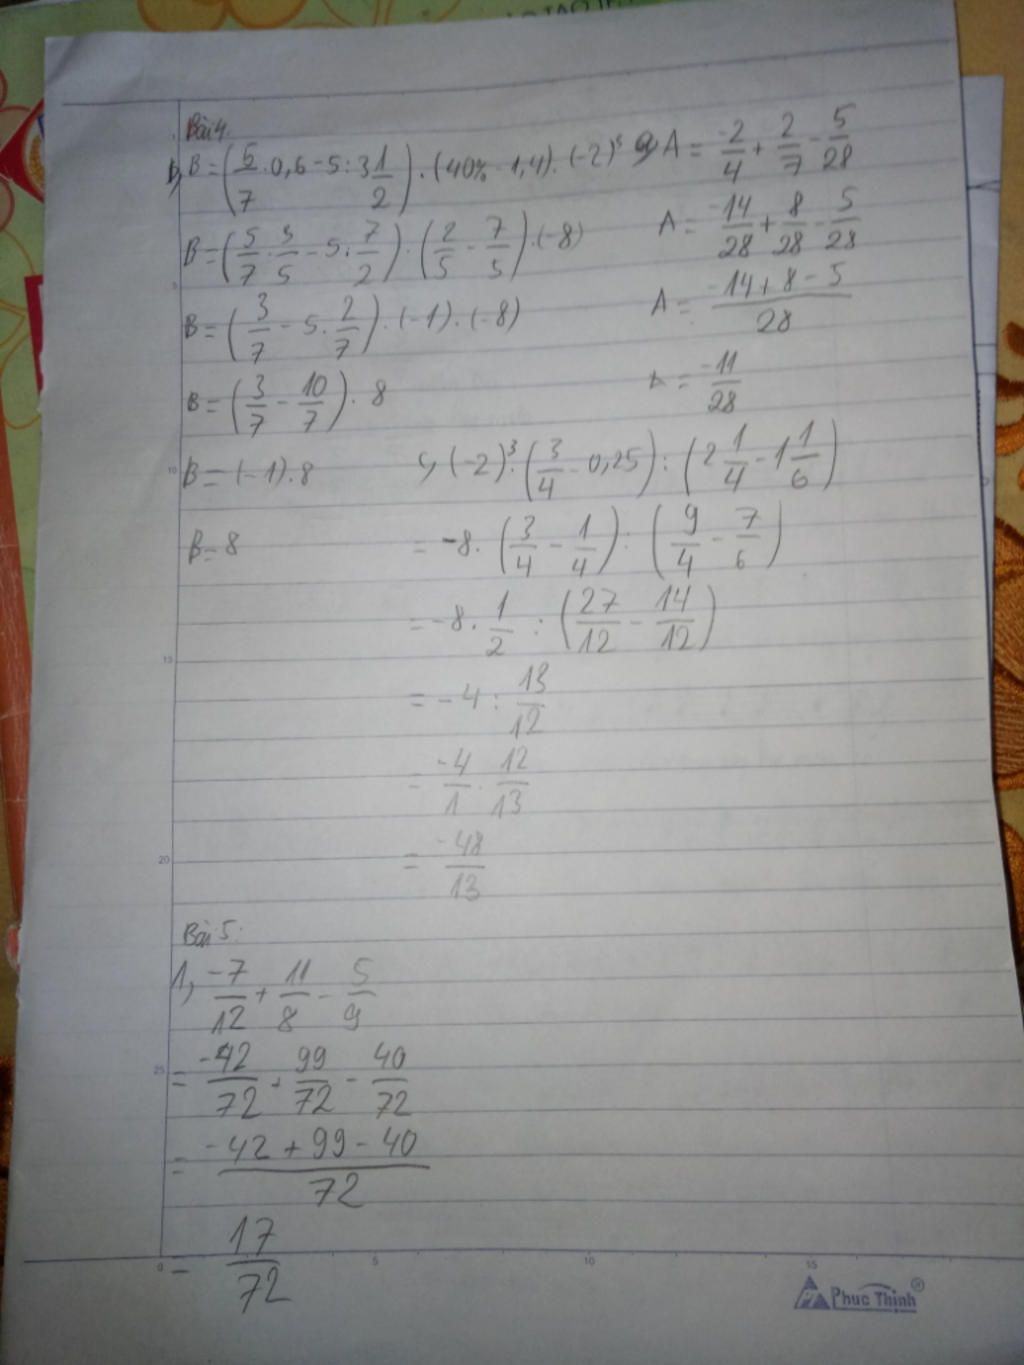 Bài 4:
b, B = (5/7 . 0,6 - 5 : 3 1/2) . (40% - 1,4) . (-2)³
B = (5/7 . 3/5 - 5 : 7/2) . (2/5 - 7/5) . (-8)
B = (3/7 - 5 . 2/7) . (-1) . (-8)
B = (3/7 - 10/7) . 8
B = (-1) . 8
B = 8
a, A = -2/4 + 2/7 - 5/28
A = -14/28 + 8/28 - 5/28
A = -14 + 8 - 5/28
A = -11/28
c, (-2)³ . (3/4 - 0,25) : (2 1/4 - 1 1/6)
= -8 . (3/4 - 1/4) : (9/4 - 7/6)
= -8 . 1/2 : (27/12 - 14/12)
= -4 : 13/12
= -4/1 . 12/13
= -48/13
Bài 5:
1, -7/12 + 11/8 - 5/9
= -42/72 + 99/72 - 40/72
= -42 + 99 - 40/72
= 17/72
Phuc Thinh®